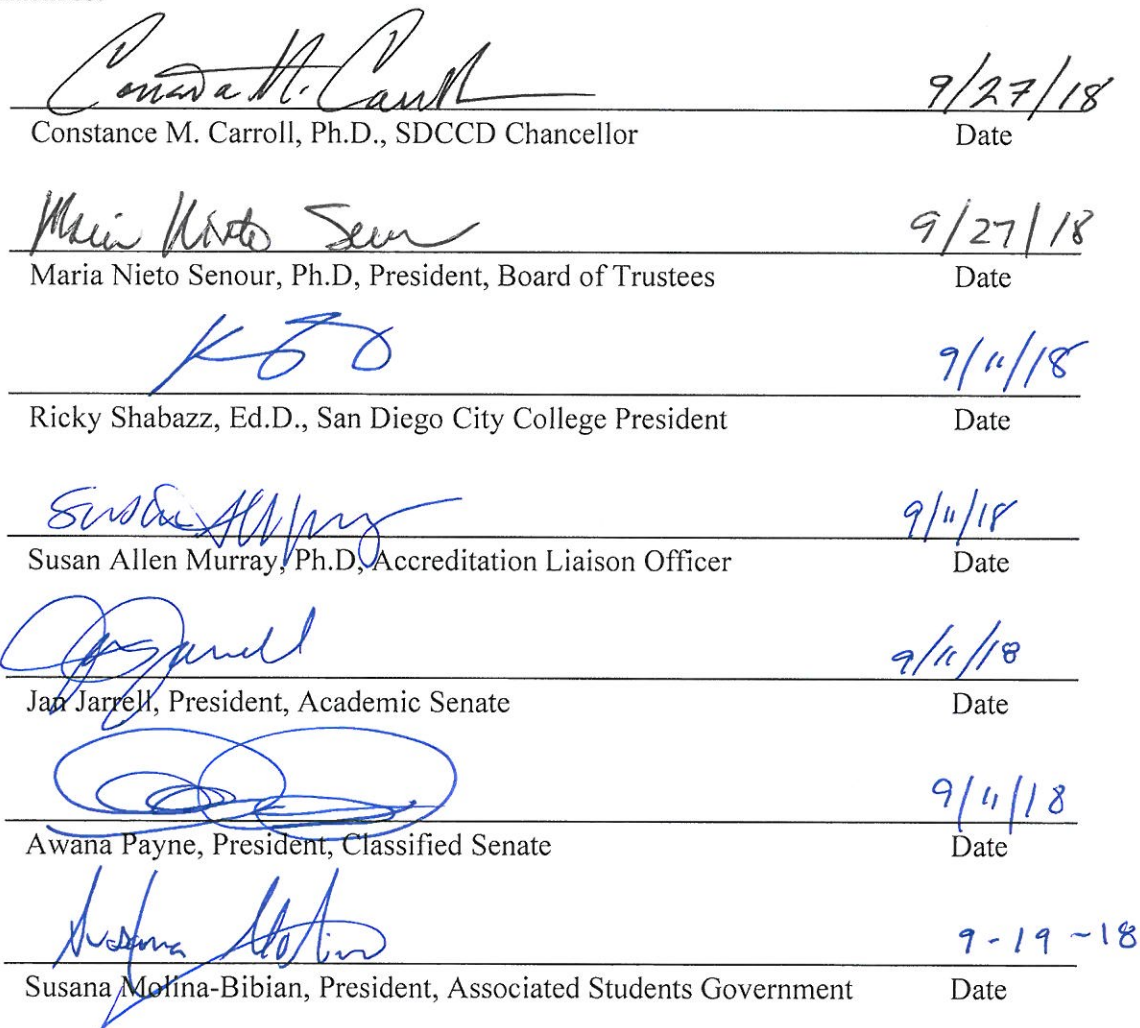 Constance M. Carroll 9/27/18
Constance M. Carroll, Ph.D., SDCCD Chancellor Date
Maria Nieto Senour 9/27/18
Maria Nieto Senour, Ph.D, President, Board of Trustees Date
9/11/18
Ricky Shabazz, Ed.D., San Diego City College President Date
Susan 9/11/18
Susan Allen Murray, Ph.D, Accreditation Liaison Officer Date
Jarrell 9/11/18
Jan Jarrell, President, Academic Senate Date
9/11/18
Awana Payne, President, Classified Senate Date
Susana Molina 9-19-18
Susana Molina-Bibian, President, Associated Students Government Date